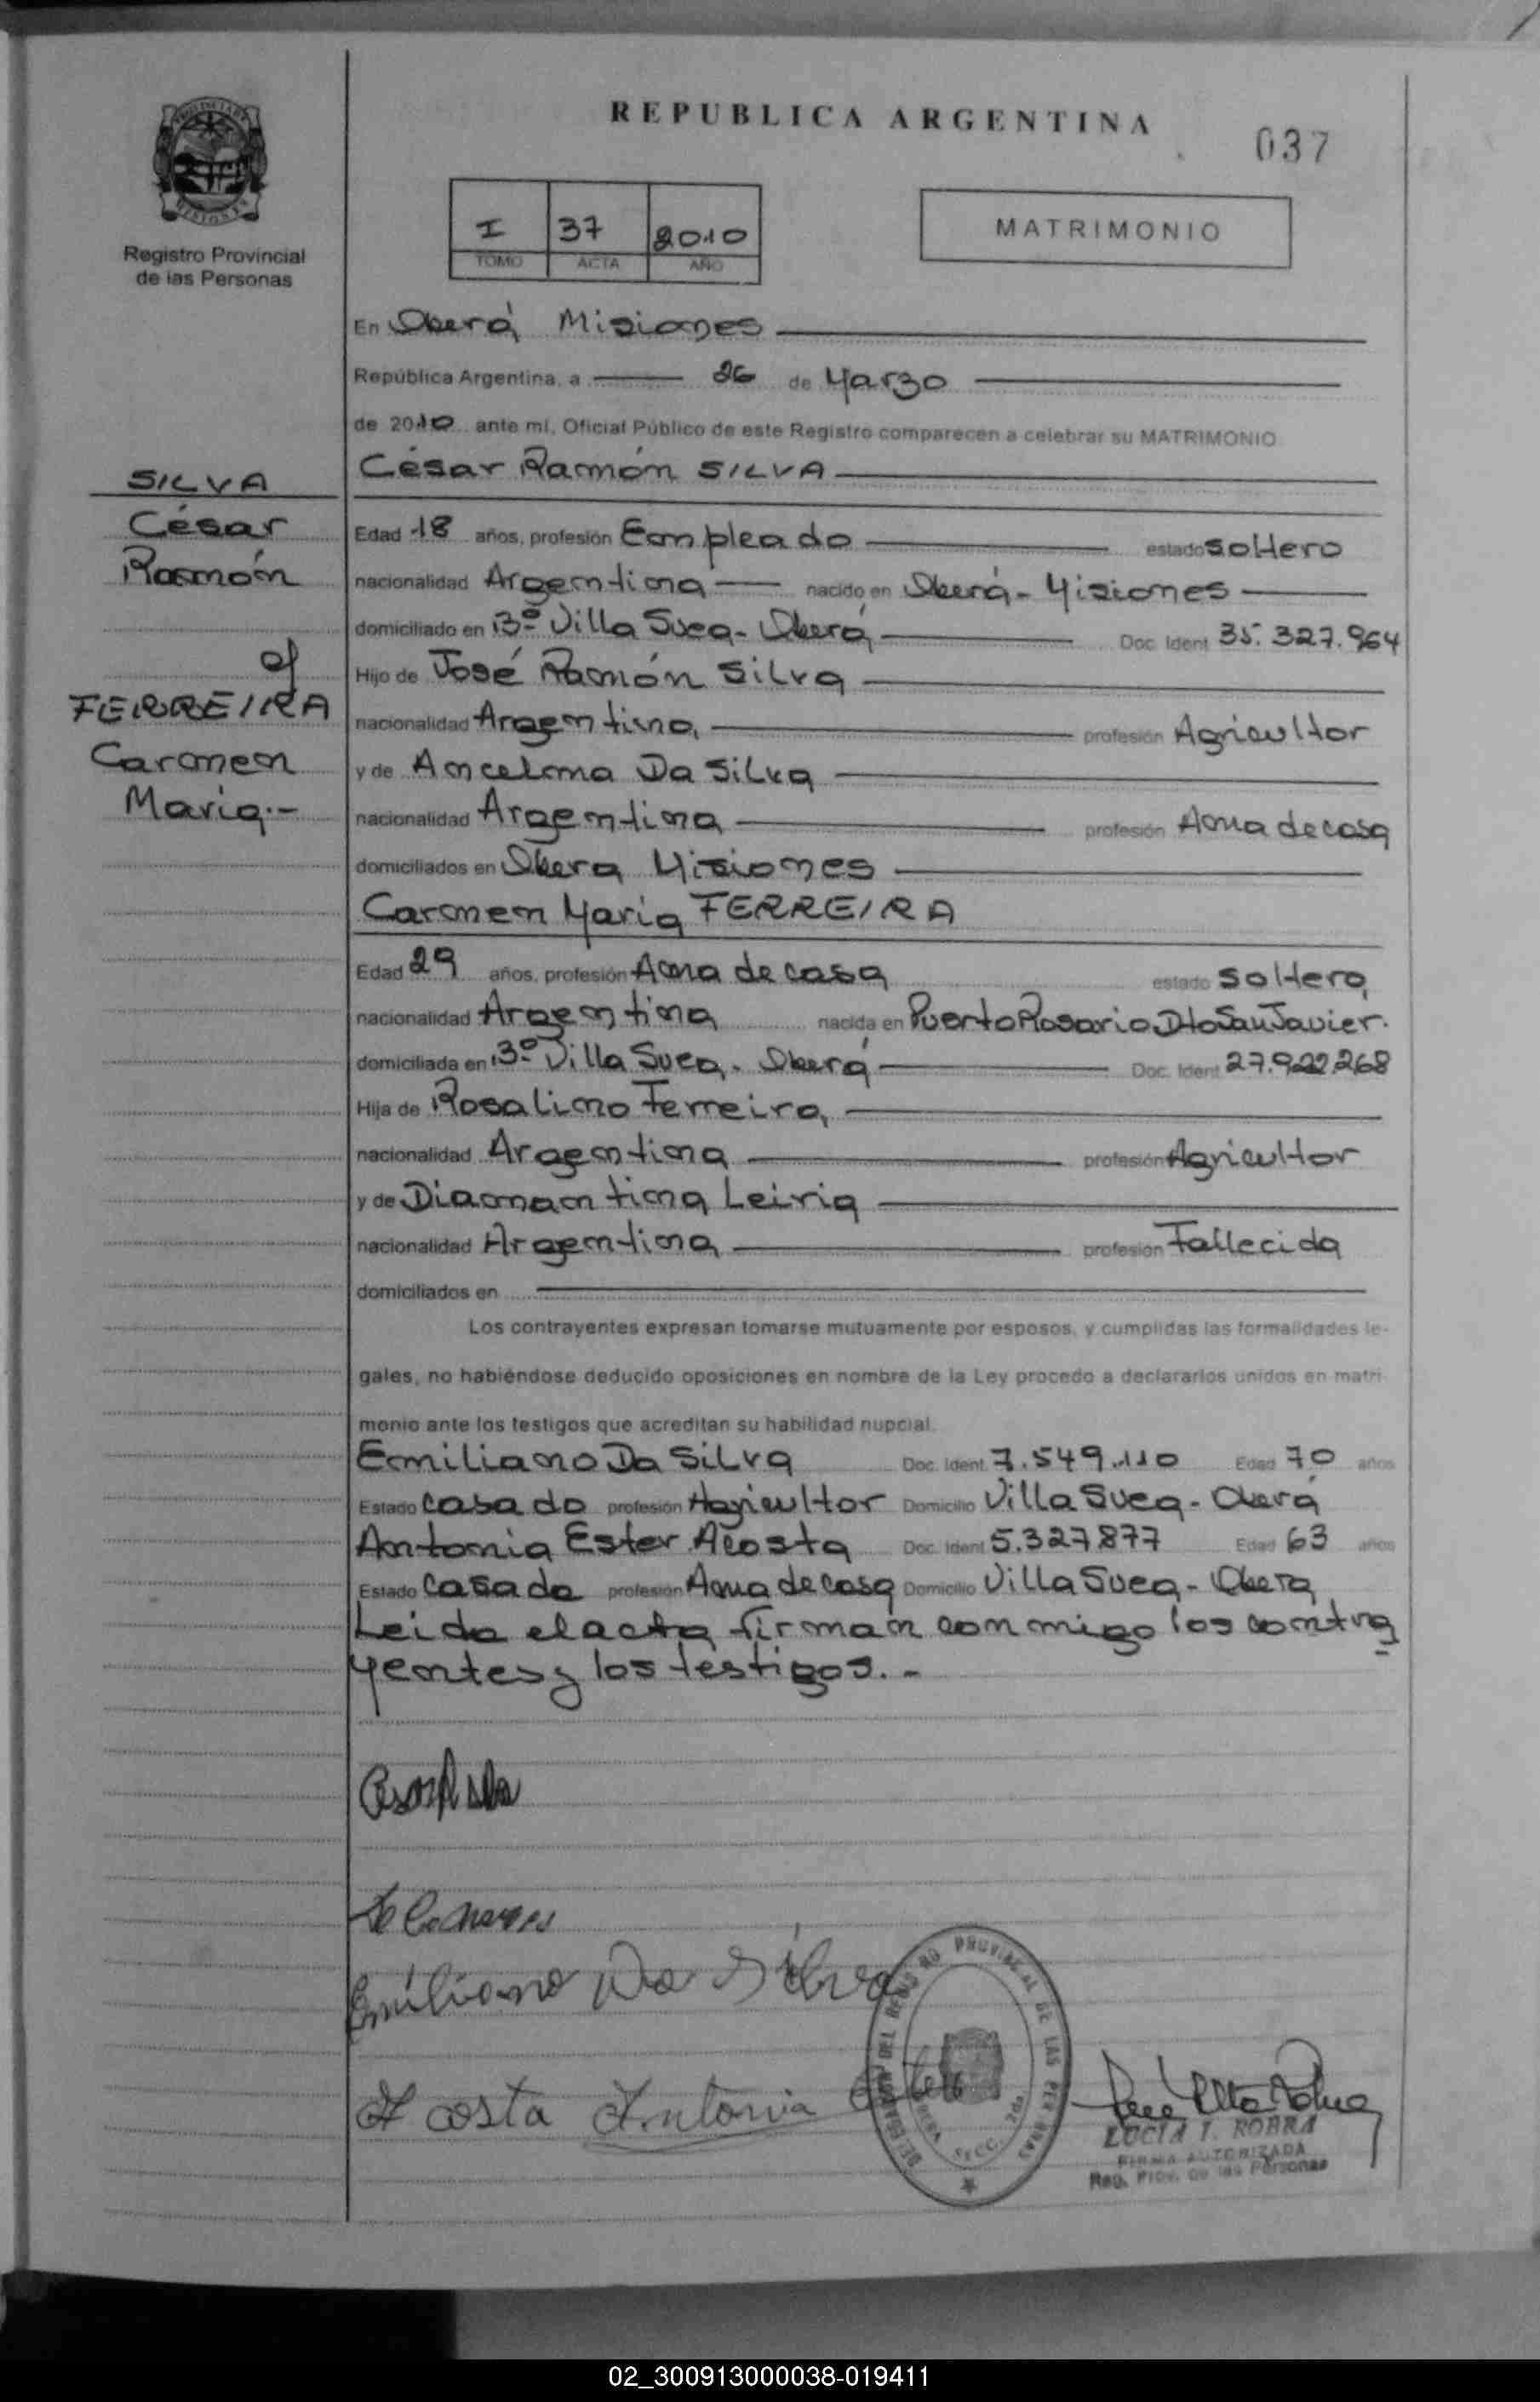 REPUBLICA ARGENTINA
037
I 37 2010
TOMO ACTA AÑO
MATRIMONIO
Registro Provincial
de las Personas
En Oberá Misiones
República Argentina, a 26 de Marzo
de 2010 ante mí, Oficial Público de este Registro comparecen a celebrar su MATRIMONIO
César Ramón SILVA
SILVA
César
Ramón
c/
FERREIRA
Carmen
Maria.-
Edad 18 años, profesión Empleado estado soltero
nacionalidad Argentina nacido en Oberá - Misiones
domiciliado en B° Villa Svea - Oberá Doc. Ident. 35.327.964
Hijo de José Ramón Silva
nacionalidad Argentina profesión Agricultor
y de Ancelma Da Silva
nacionalidad Argentina profesión Ama de casa
domiciliados en Obera Misiones
Carmen Maria FERREIRA
Edad 29 años, profesión Ama de casa estado soltera
nacionalidad Argentina nacida en Puerto Rosario Dto San Javier.
domiciliada en B° Villa Svea - Oberá Doc. Ident. 27.922.268
Hija de Rosalino Ferreira
nacionalidad Argentina profesión Agricultor
y de Diamantina Leiria
nacionalidad Argentina profesión Fallecida
domiciliados en
Los contrayentes expresan tomarse mutuamente por esposos, y cumplidas las formalidades le-
gales, no habiéndose deducido oposiciones en nombre de la Ley procedo a declararlos unidos en matri-
monio ante los testigos que acreditan su habilidad nupcial.
Emiliano Da Silva Doc. Ident. 7.549.110 Edad 70 años
Estado casado profesión Agricultor Domicilio Villa Svea - Oberá
Antonia Ester Acosta Doc. Ident. 5.327877 Edad 63 años
Estado casada profesión Ama de casa Domicilio Villa Svea - Obera
Leida el acta firman conmigo los contra
yentes y los testigos.-
Emiliano Da Silva
Acosta Antonia Ester
DELEGACION DEL REGISTRO PROVINCIAL DE LAS PERSONAS
OBERA SECC. 2da
LUCIA I. ROBRA
FIRMA AUTORIZADA
Reg. Prov. de las Personas
02_300913000038-019411